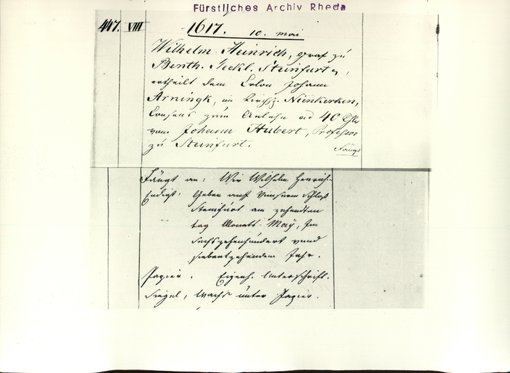 Fürstliches Archiv Rheda
447. VIII 1617. 10. mai
Wilhelm Heinrich, Graf zu
Benth. Teckl. Steinfurt,
ertheilt dem Colon Johann
Arningk, im Kirchsp. Nienkerken,
Consens zum Anlehn ad 40
von Johann Hubert, Professor
zu Steinfurt.
Fängt
Fängt an: Wir Wilhelm Henrich
Endigt: Geben auf Unserm
Steinfurt am zehendten
tag Monatt May, Im
Sechszehenhundert unnd
siebentzehenden Jahr.
Papier. Eigenh. Unterschrift.
Siegel, Wachs unter Papier.